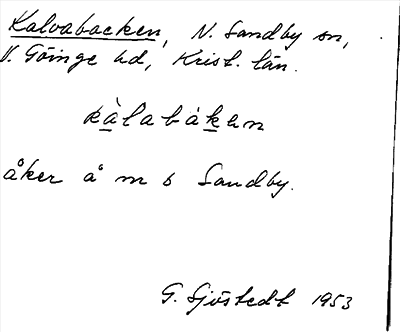 Kalvabacken, N. Sandby sn,
V. Göinge hd, Krist. län.
kàlabáken
åker å nr 6 Sandby.
G. Sjöstedt 1953